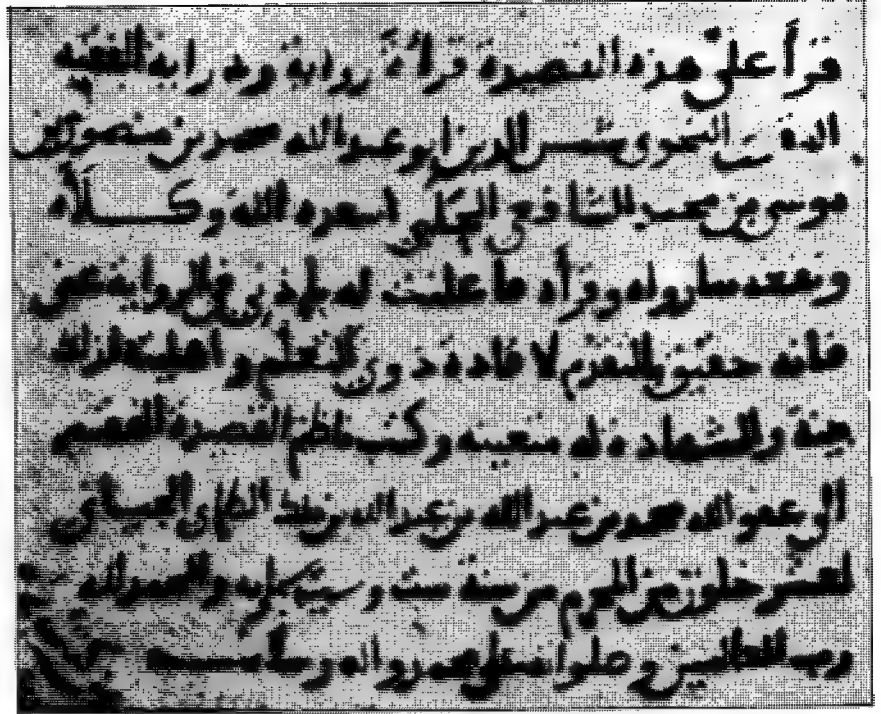 قرأ علي هذه القصيدة قراءة رواية ودراية الفقيه
الثقة الثبت النحوي شمس الدين أبو عبد الله محمد بن منصور بن
موسى بن محمد الشافعي الحلبي اسعده الله وكلأه
وسمعه سا روله وقرأه ما علمت له فاذن لي في الرواية عني
فانه حقيق بالتقدم لافادة ذوي التعلم واهليته لذلك
بينة والشهادة له متعينة وكتب ناظم القصيدة الفقير
الى عفو الله محمد بن عبد الله بن عبد الله بن ملك الطائي الجياني
لعشر خلون من المحرم من سنة ست وستين وستمائه والحمد لله
رب العالمين وصلواته على محمد واله وسلامه